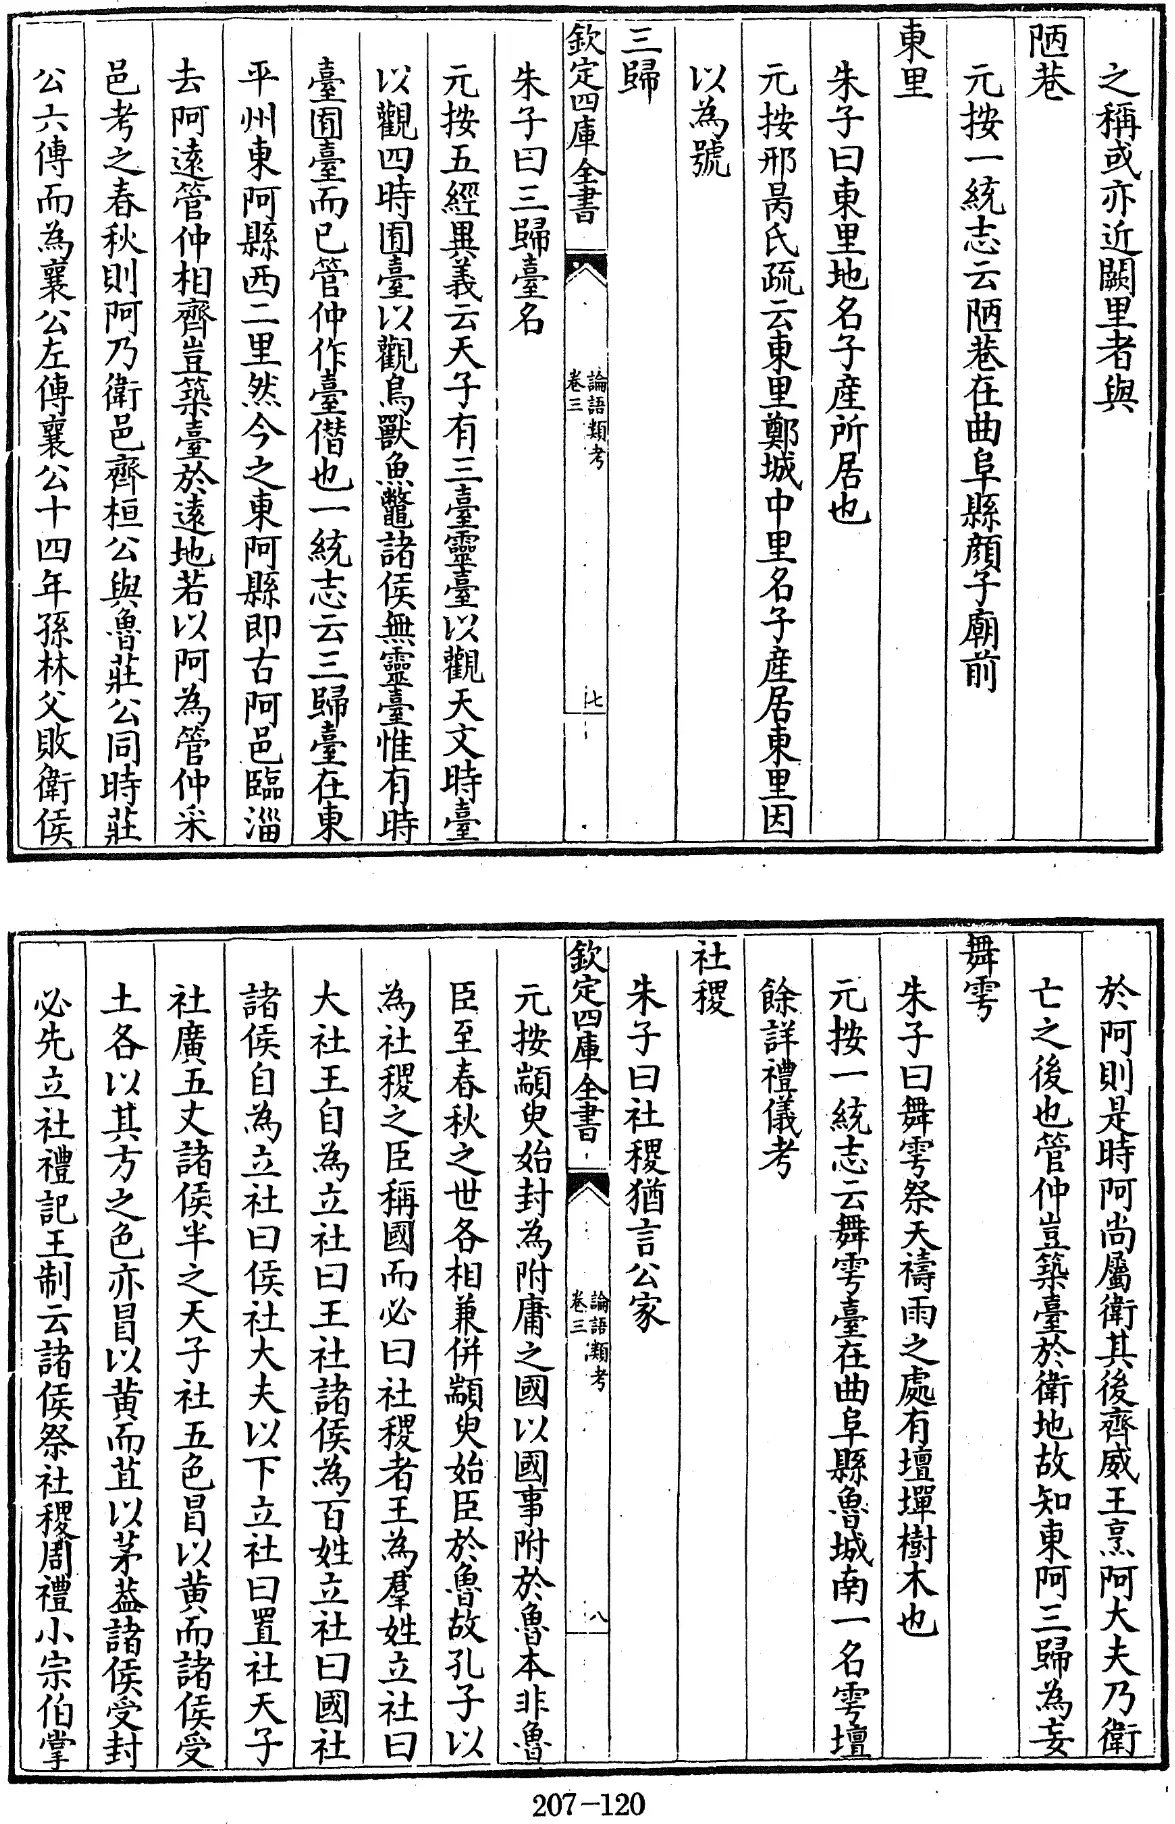 之稱或亦近闕里者與
陋巷
元按一統志云陋巷在曲阜縣顔子廟前
東里
朱子曰東里地名子產所居也
元按邢昺氏疏云東里鄭城中里名子產居東里因
以為號
三歸
欽定四庫全書
論語類考
卷三
七
朱子曰三歸臺名
元按五經異義云天子有三臺靈臺以觀天文時臺
以觀四時囿臺以觀鳥獸魚鼈諸侯無靈臺惟有時
臺囿臺而已管仲作臺僭也一統志云三歸臺在東
平州東阿縣西二里然今之東阿縣即古阿邑臨淄
去阿遠管仲相齊豈築臺於遠地若以阿為管仲采
邑考之春秋則阿乃衛邑齊桓公與魯莊公同時莊
公六傳而為襄公左傳襄公十四年孫林父敗衛侯
於阿則是時阿尚屬衛其後齊威王烹阿大夫乃衛
亡之後也管仲豈築臺於衛地故知東阿三歸為妄
舞雩
朱子曰舞雩祭天禱雨之處有壇墠樹木也
元按一統志云舞雩臺在曲阜縣魯城南一名雩壇
餘詳禮儀考
社稷
朱子曰社稷猶言公家
欽定四庫全書
論語類考
卷三
八
元按顓臾始封為附庸之國以國事附於魯本非魯
臣至春秋之世各相兼併顓臾始臣於魯故孔子以
為社稷之臣稱國而必曰社稷者王為羣姓立社曰
大社王自為立社曰王社諸侯為百姓立社曰國社
諸侯自為立社曰侯社大夫以下立社曰置社天子
社廣五丈諸侯半之天子社五色冒以黄而諸侯受
土各以其方之色亦冒以黄而苴以茅葢諸侯受封
必先立社禮記王制云諸侯祭社稷周禮小宗伯掌
207-120